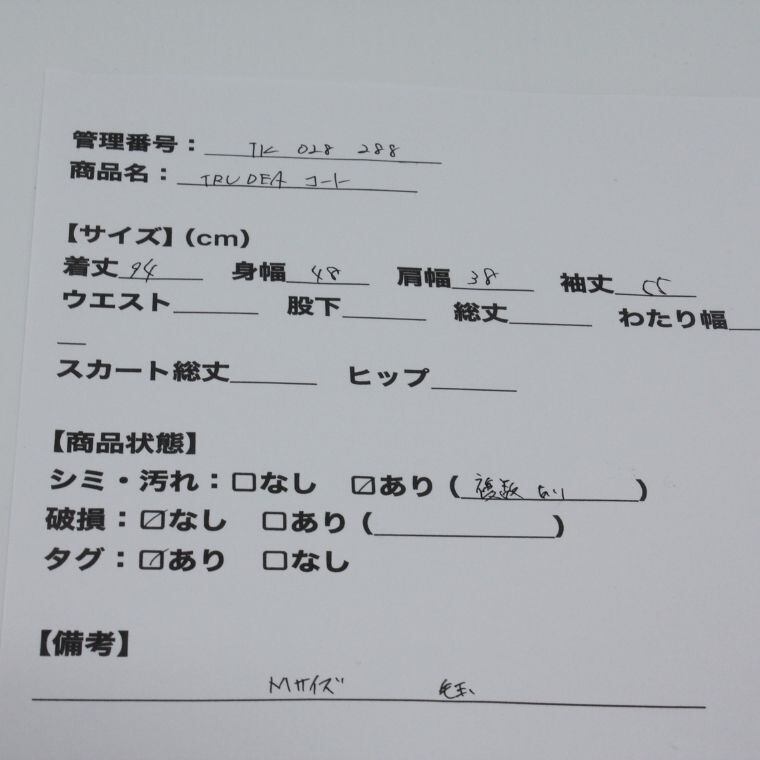 管理番号： TK 028 288
商品名： TRU DEA コート
【サイズ】(cm)
着丈 94 身幅 48 肩幅 38 袖丈 55
ウエスト 股下 総丈 わたり幅
スカート総丈 ヒップ
【商品状態】
シミ・汚れ：□なし ☑あり（複数 あり）
破損：☑なし □あり（ ）
タグ：☑あり □なし
【備考】
Mサイズ 毛玉